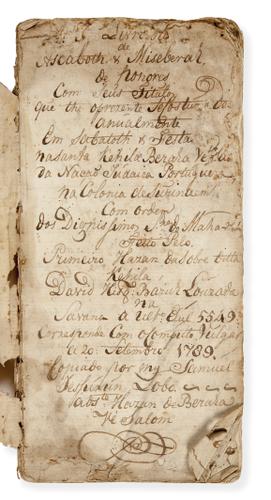 Livro
de
Ascaboth & Miseberah
de honores
Com Seus Titulos
que the oprezente
anualmente
Em Sabatoth & Festa
na Santa Kehila Beraha Ve
da Nacaõ Judaica Portugue
na Colonia de
Com ordem
dos Dignissimos Sres da Mahamad
Feito Pelo
Primeiro Hazan da Sobre ditta
Kehila
David Hᵒ Baruk Louzada
na
Savana a 28 Elul 5549
Corresponde Com o Computo Vulgar
a 20 Setembro 1789
Copiado por my Samuel
Lobo
Hazan de Beraha
Ve Salom